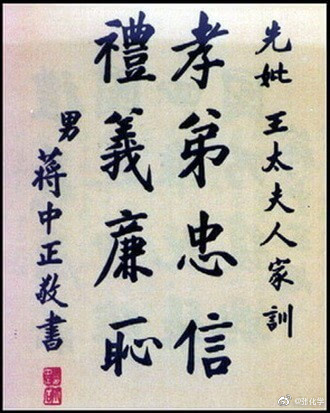 先妣王太夫人家訓
孝弟忠信
禮義廉恥
男蔣中正敬書
@張化学